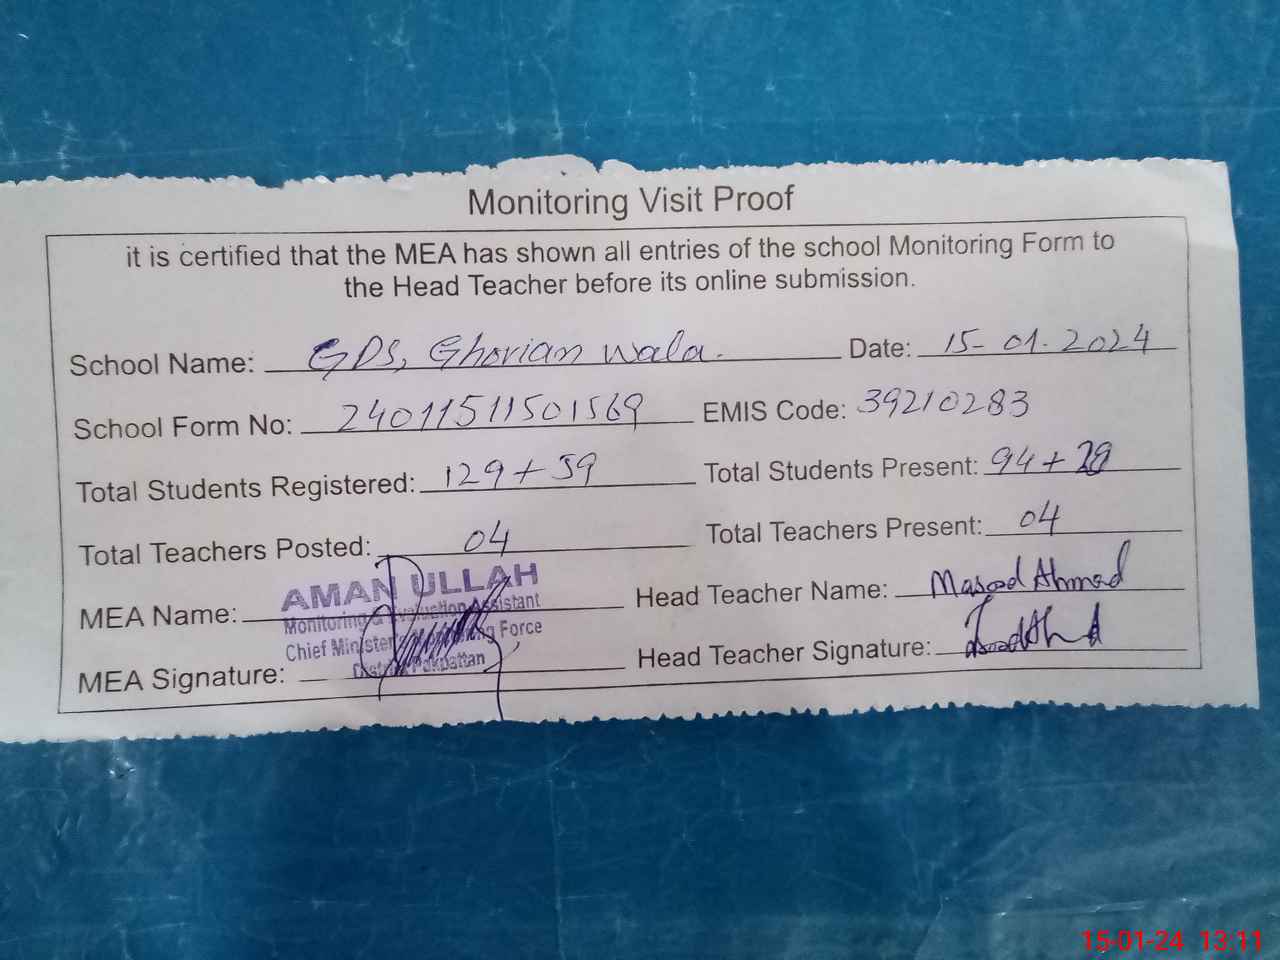 Monitoring Visit Proof
it is certified that the MEA has shown all entries of the school Monitoring Form to
the Head Teacher before its online submission.
School Name: GDS, Ghorian Wala. Date: 15-01.2024
School Form No: 24011511501569 EMIS Code: 39210283
Total Students Registered: 129+59 Total Students Present: 94+28
Total Teachers Posted: 04 Total Teachers Present: 04
MEA Name: AMAN ULLAH Head Teacher Name: Masood Ahmad
Monitoring & Evaluation Assistant
Chief Minister Monitoring Force
District Pakpattan
MEA Signature: Head Teacher Signature:
15-01-24 13:11